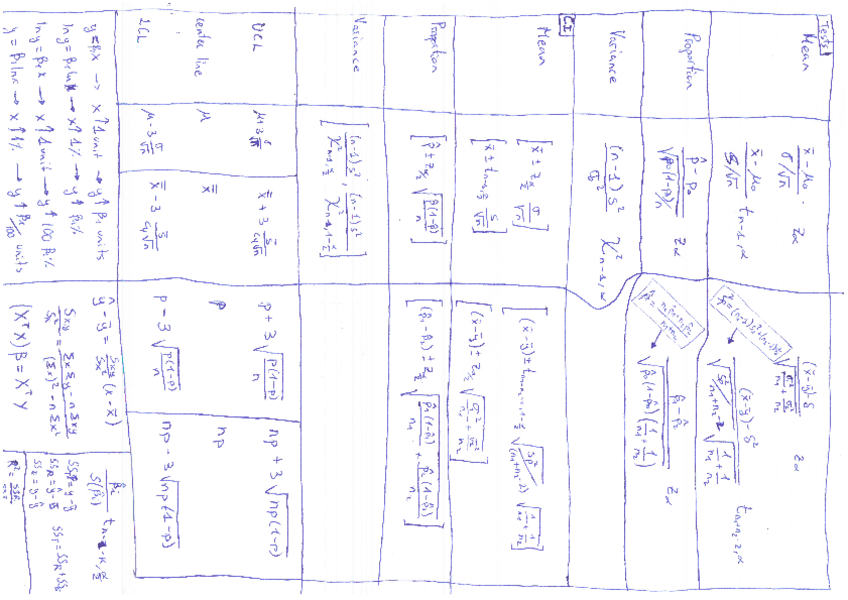 Tests
Mean
x̄ - μ₀ / σ/√n   zα
x̄ - μ₀ / s/√n   t n-1, α
(x̄-ȳ)-δ / √(σ₁²/n₁ + σ₂²/n₂)   zα
(x̄-ȳ)-δ / √(sp²/n₁+n₂-2) √(1/n₁ + 1/n₂)   t n₁+n₂-2, α
Proportion
p̂ - p₀ / √(p₀(1-p₀)/n)   zα
p̂₁ - p̂₂ / √(p̂₀(1-p̂₀)(1/n₁ + 1/n₂))   zα
Variance
(n-1)s² / σ²   χ² n-1, α
CI
Mean
[x̄ ± z α/2 σ/√n]
[x̄ ± t n-1, α/2 s/√n]
[(x̄-ȳ) ± z α/2 √(σ₁²/n₁ + σ₂²/n₂)]
Proportion
[p̂ ± z α/2 √(p̂(1-p̂)/n)]
[(p̂₁-p̂₂) ± z α/2 √(p̂₁(1-p̂₁)/n₁ + p̂₂(1-p̂₂)/n₂)]
Variance
[(n-1)s² / χ² n-1, α/2 ; (n-1)s² / χ² n-1, 1-α/2]
UCL
μ+3 σ/√n
x̿ + 3 s̄/c₄√n
p + 3 √(p(1-p)/n)
np + 3 √np(1-p)
center line
μ
x̿
p
np
LCL
μ - 3 σ/√n
x̿ - 3 s̄/c₄√n
p - 3 √(p(1-p)/n)
np - 3 √np(1-p)
y = β₁x → x ↑ 1 unit → y ↑ β₁ units
ln y = β₁ ln x → x ↑ 1% → y ↑ β₁%
ln y = β₁ x → x ↑ 1 unit → y ↑ 100 β₁%
y = β₁ ln x → x ↑ 1% → y ↑ β₁/100 units
ŷ - ȳ = Sxy/Sx² (x - x̄)
Sxy/Sx² = ΣxΣy - nΣxy / (Σx)² - nΣx²
(XᵀX)β = Xᵀy
SST = y-ȳ
SSR = ŷ-ȳ
SSE = y-ŷ
SST = SSR + SSE